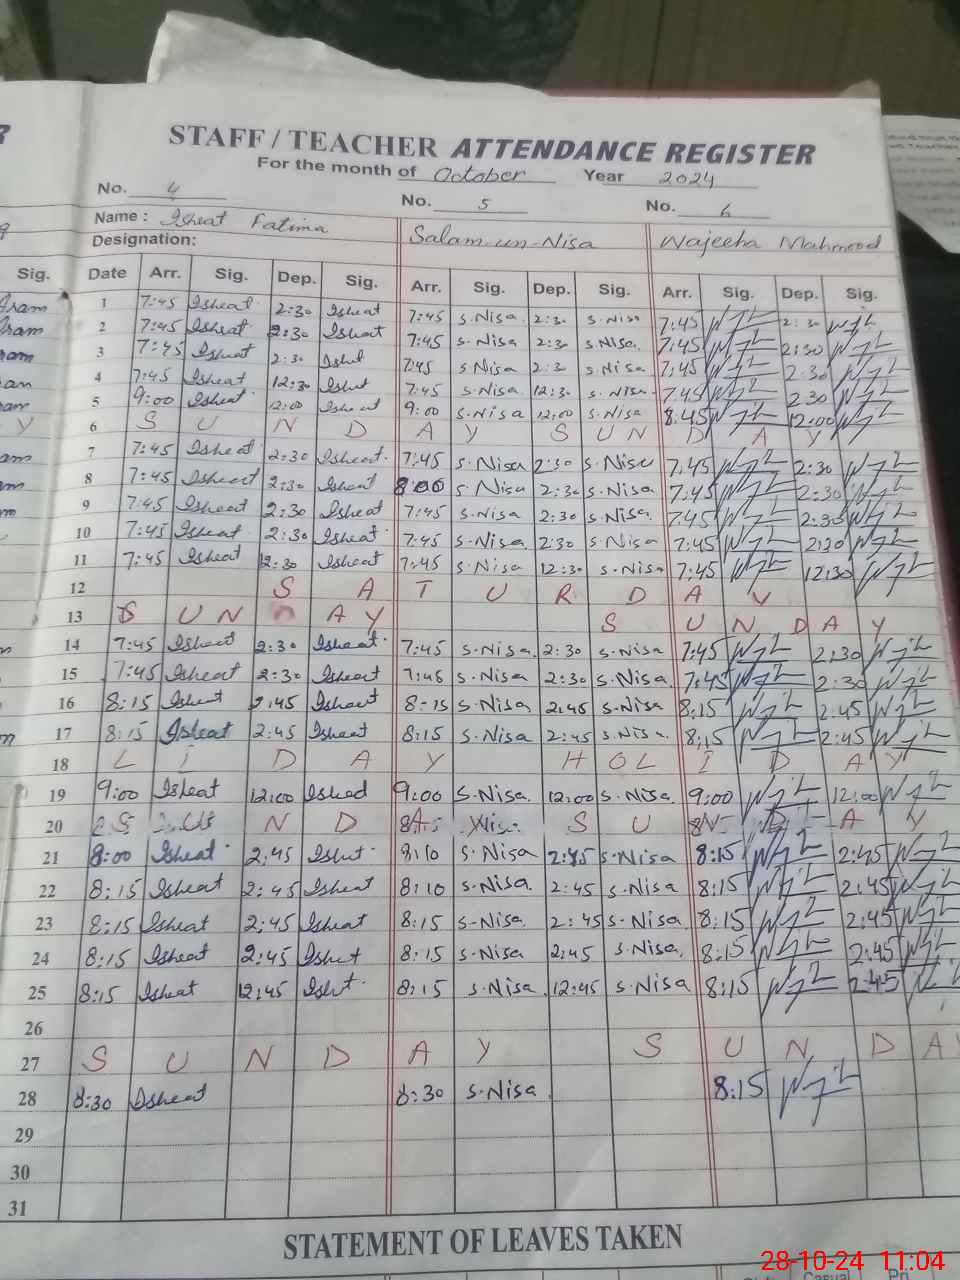 STAFF / TEACHER ATTENDANCE REGISTER
For the month of October Year 2024
No. 4 No. 5 No. 6
Name : Isheat Fatima Salam-un-Nisa Wajeeha Mahmood
Designation:
Sig. Date Arr. Sig. Dep. Sig Arr. Sig. Dep. Sig. Arr. Sig. Dep. Sig.
1 7:45 Isheat 2:30 Isheat 7:45 S.Nisa 2:30 S.Nisa 7:45 2:30
2 7:45 Isheat 2:30 Isheat 7:45 S.Nisa 2:30 S.Nisa. 7:45 2:30
3 7:45 Isheat 2:30 Ishet 7:45 S.Nisa 2:30 S.Nisa 7:45 2:30
4 7:45 Isheat 12:30 Ishet 7:45 S.Nisa 12:30 S.Nisa 7:45 2:30
5 9:00 Isheat 12:00 Isheat 9:00 S.Nisa 12:00 S.Nisa 8:45 12:00
6 S U N D A Y S U N D A Y
7 7:45 Isheat 2:30 Isheat 7:45 S.Nisa 2:30 S.Nisa 7:45 2:30
8 7:45 Isheat 2:30 Isheat 8:00 S.Nisa 2:30 S.Nisa 7:45 2:30
9 7:45 Isheat 2:30 Isheat 7:45 S.Nisa 2:30 S.Nisa. 7:45 2:30
10 7:45 Isheat 2:30 Isheat 7:45 S.Nisa 2:30 S.Nisa. 7:45 2:30
11 7:45 Isheat 12:30 Isheat 7:45 S.Nisa 12:30 S.Nisa 7:45 12:30
12 S A T U R D A Y
13 S U N D A Y S U N D A Y
14 7:45 Isheat 2:30 Isheat 7:45 S.Nisa. 2:30 S.Nisa 7:45 2:30
15 7:45 Isheat 2:30 Isheat 7:45 S.Nisa 2:30 S.Nisa. 7:45 2:30
16 8:15 Isheat 2:45 Isheat 8:15 S.Nisa 2:45 S.Nisa 8:15 2:45
17 8:15 Isheat 2:45 Isheat 8:15 S.Nisa 2:45 S.Nisa. 8:15 2:45
18 L I D A Y H O L I D A Y
19 9:00 Isheat 12:00 Isheat 9:00 S.Nisa. 12:00 S.Nisa. 9:00 12:00
20 S U N D A Y S U N D A Y
21 8:00 Isheat 2:45 Ishet 8:10 S.Nisa 2:45 S.Nisa 8:15 2:45
22 8:15 Isheat 2:45 Isheat 8:10 S.Nisa. 2:45 S.Nisa 8:15 2:45
23 8:15 Isheat 2:45 Isheat 8:15 S.Nisa. 2:45 S.Nisa. 8:15 2:45
24 8:15 Isheat 2:45 Ishet 8:15 S.Nisa 2:45 S.Nisa. 8:15 2:45
25 8:15 Isheat 12:45 Ishet 8:15 S.Nisa. 12:45 S.Nisa 8:15 2:45
26
27 S U N D A Y S U N D A Y
28 8:30 Isheat 8:30 S.Nisa 8:15
29
30
31
STATEMENT OF LEAVES TAKEN
28-10-24 11:04